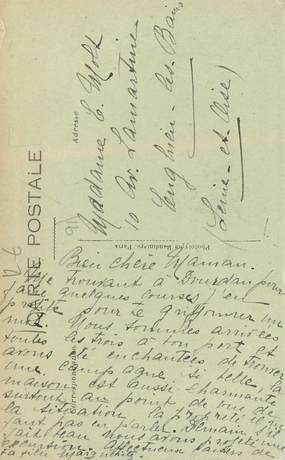 CARTE POSTALE
Adresse
Madame E. Molt
10 Av. Lamartine
Enghien-les-Bains
(Seine-et-Oise)
Phototypie Baudinière, Paris
Correspondance
Bien chère Maman.
Me trouvant à Dourdan pour
faire quelques courses j'en
profite pour te griffonner un
mot. Nous sommes arrivées
toutes les trois à bon port et
avons été enchantées de trouver
une campagne si belle, la
maison est aussi charmante
surtout au point de vue de
la situation, la propreté il ne
faut pas en parler. Demain, s'il
fait beau nous avons projeté une
excursion.
Ta fille Marguerite